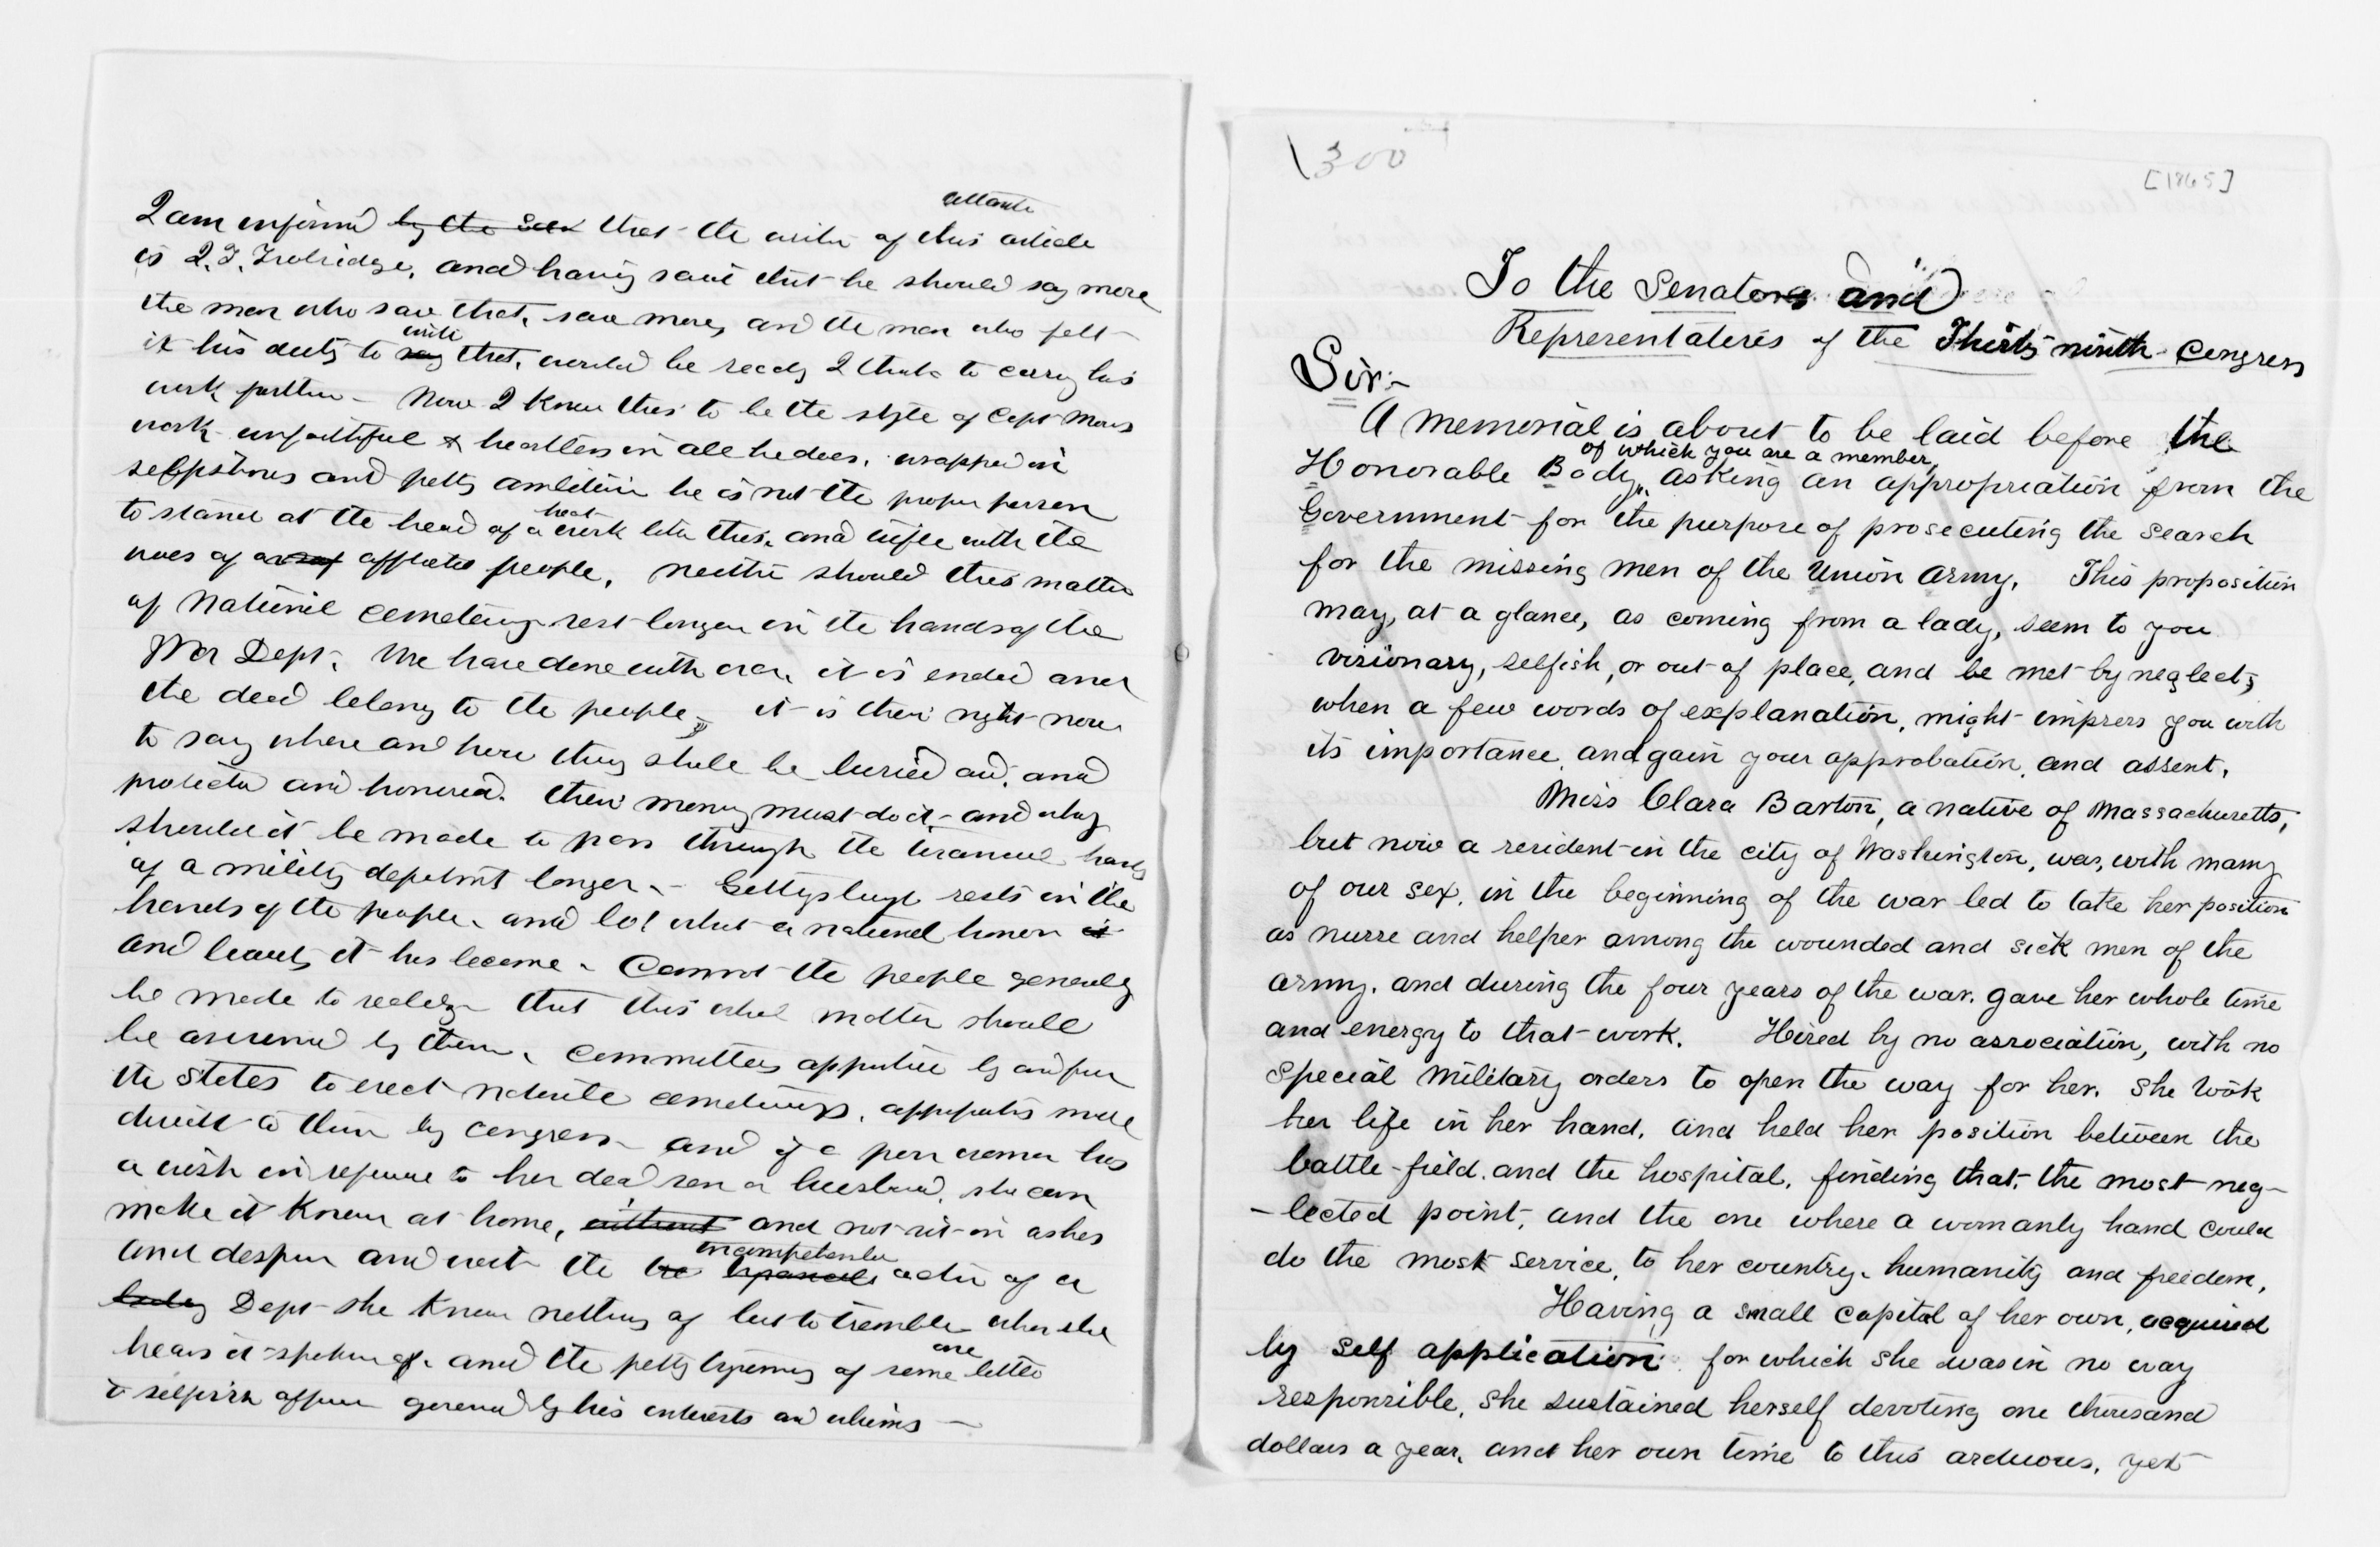 I am informed by the Seck that the writer of this article
atlantic
is J. T. Trobridge, and having said this he should say more
the man who saw that, saw more, and the man who felt
it his duty to say that, would be ready I think to carry his
write
work further - Now I know this to be the style of Capt Moores
work unfaithful & heartless in all he does, wrapped in
selfishness and petty ambition he is not the proper person
to stand at the head of a work like this, and trifle with the
great
woes of afflicted people, neither should this matter
of National cemeteries rest longer in the hands of the
War Dept, We have done with war, it is ended and
the dead belong to the people, it is their right now
to say where and how they shall be buried and, and
protected and honored. their money must do it, - and why
should it be made to pass through the hands
of a military department longer, - Gettysburgh rests in the
hands of the people, and lo! what a national honor is
and beauty it has become - Cannot the people generally
be made to realize that this whole matter should
be assumed by them, committees appointed by and from
the States to erect national cemeteries, appropriations made
direct to them by congress and if a poor woman has
a wish in reference to her dead son or husband, she can
make it known at home, without and not sit in ashes
and despair and wait the action of a
incompetent
Dept she knows nothing of but to tremble when she
hears it spoken of, and the petty tyranny of some little
one
selfish officer governed by his interests and whims -
1300
[1865]
To the Senators and
Representatives of the Thirty ninth Congress
Sir:-
A memorial is about to be laid before the
of which you are a member,
Honorable Body, asking an appropriation from the
Government for the purpose of prosecuting the search
for the missing men of the Union Army. This proposition
may, at a glance, as coming from a lady, seem to you
visionary, selfish, or out of place, and be met by neglect,
when a few words of explanation, might impress you with
its importance, and gain your approbation, and assent.
Miss Clara Barton, a native of Massachusetts,
but now a resident in the city of Washington, was, with many
of our sex, in the beginning of the war led to take her position
as nurse and helper among the wounded and sick men of the
army, and during the four years of the war, gave her whole time
and energy to that work. Hired by no association, with no
special military orders to open the way for her. She took
her life in her hand, and held her position between the
battle-field, and the hospital, finding that, the most neg-
-lected point, and the one where a womanly hand could
do the most service, to her country, humanity and freedom.
Having a small capital of her own, acquired
by self application for which she was in no way
responsible, she sustained herself devoting one thousand
dollars a year, and her own time to this arduous, yet